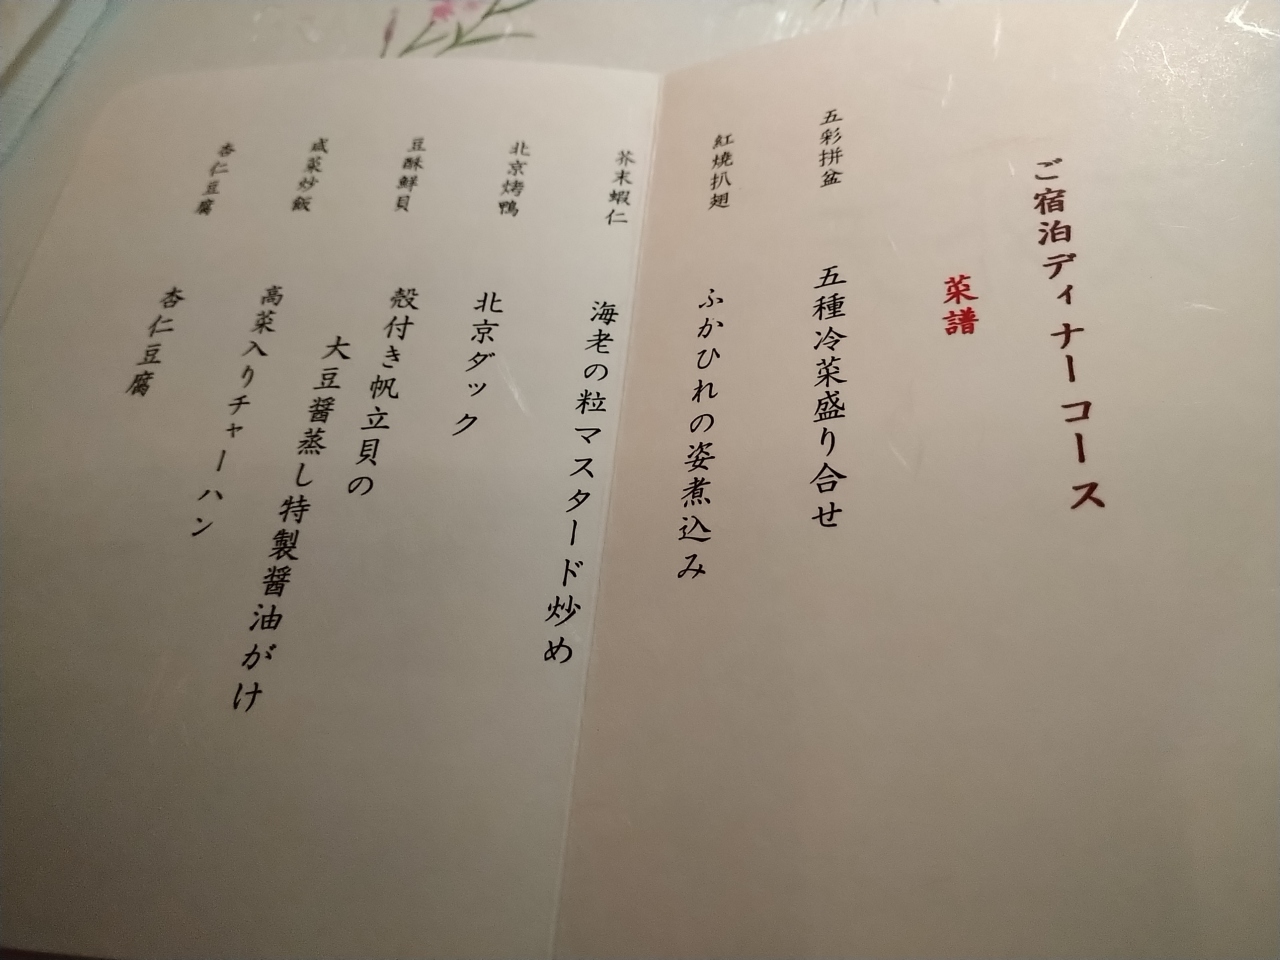 ご宿泊ディナーコース
菜譜
五彩拼盆
五種冷菜盛り合せ
紅焼扒翅
ふかひれの姿煮込み
芥末蝦仁
海老の粒マスタード炒め
北京烤鴨
北京ダック
豆酥鮮貝
殻付き帆立貝の
大豆醤蒸し特製醤油がけ
咸菜炒飯
高菜入りチャーハン
杏仁豆腐
杏仁豆腐